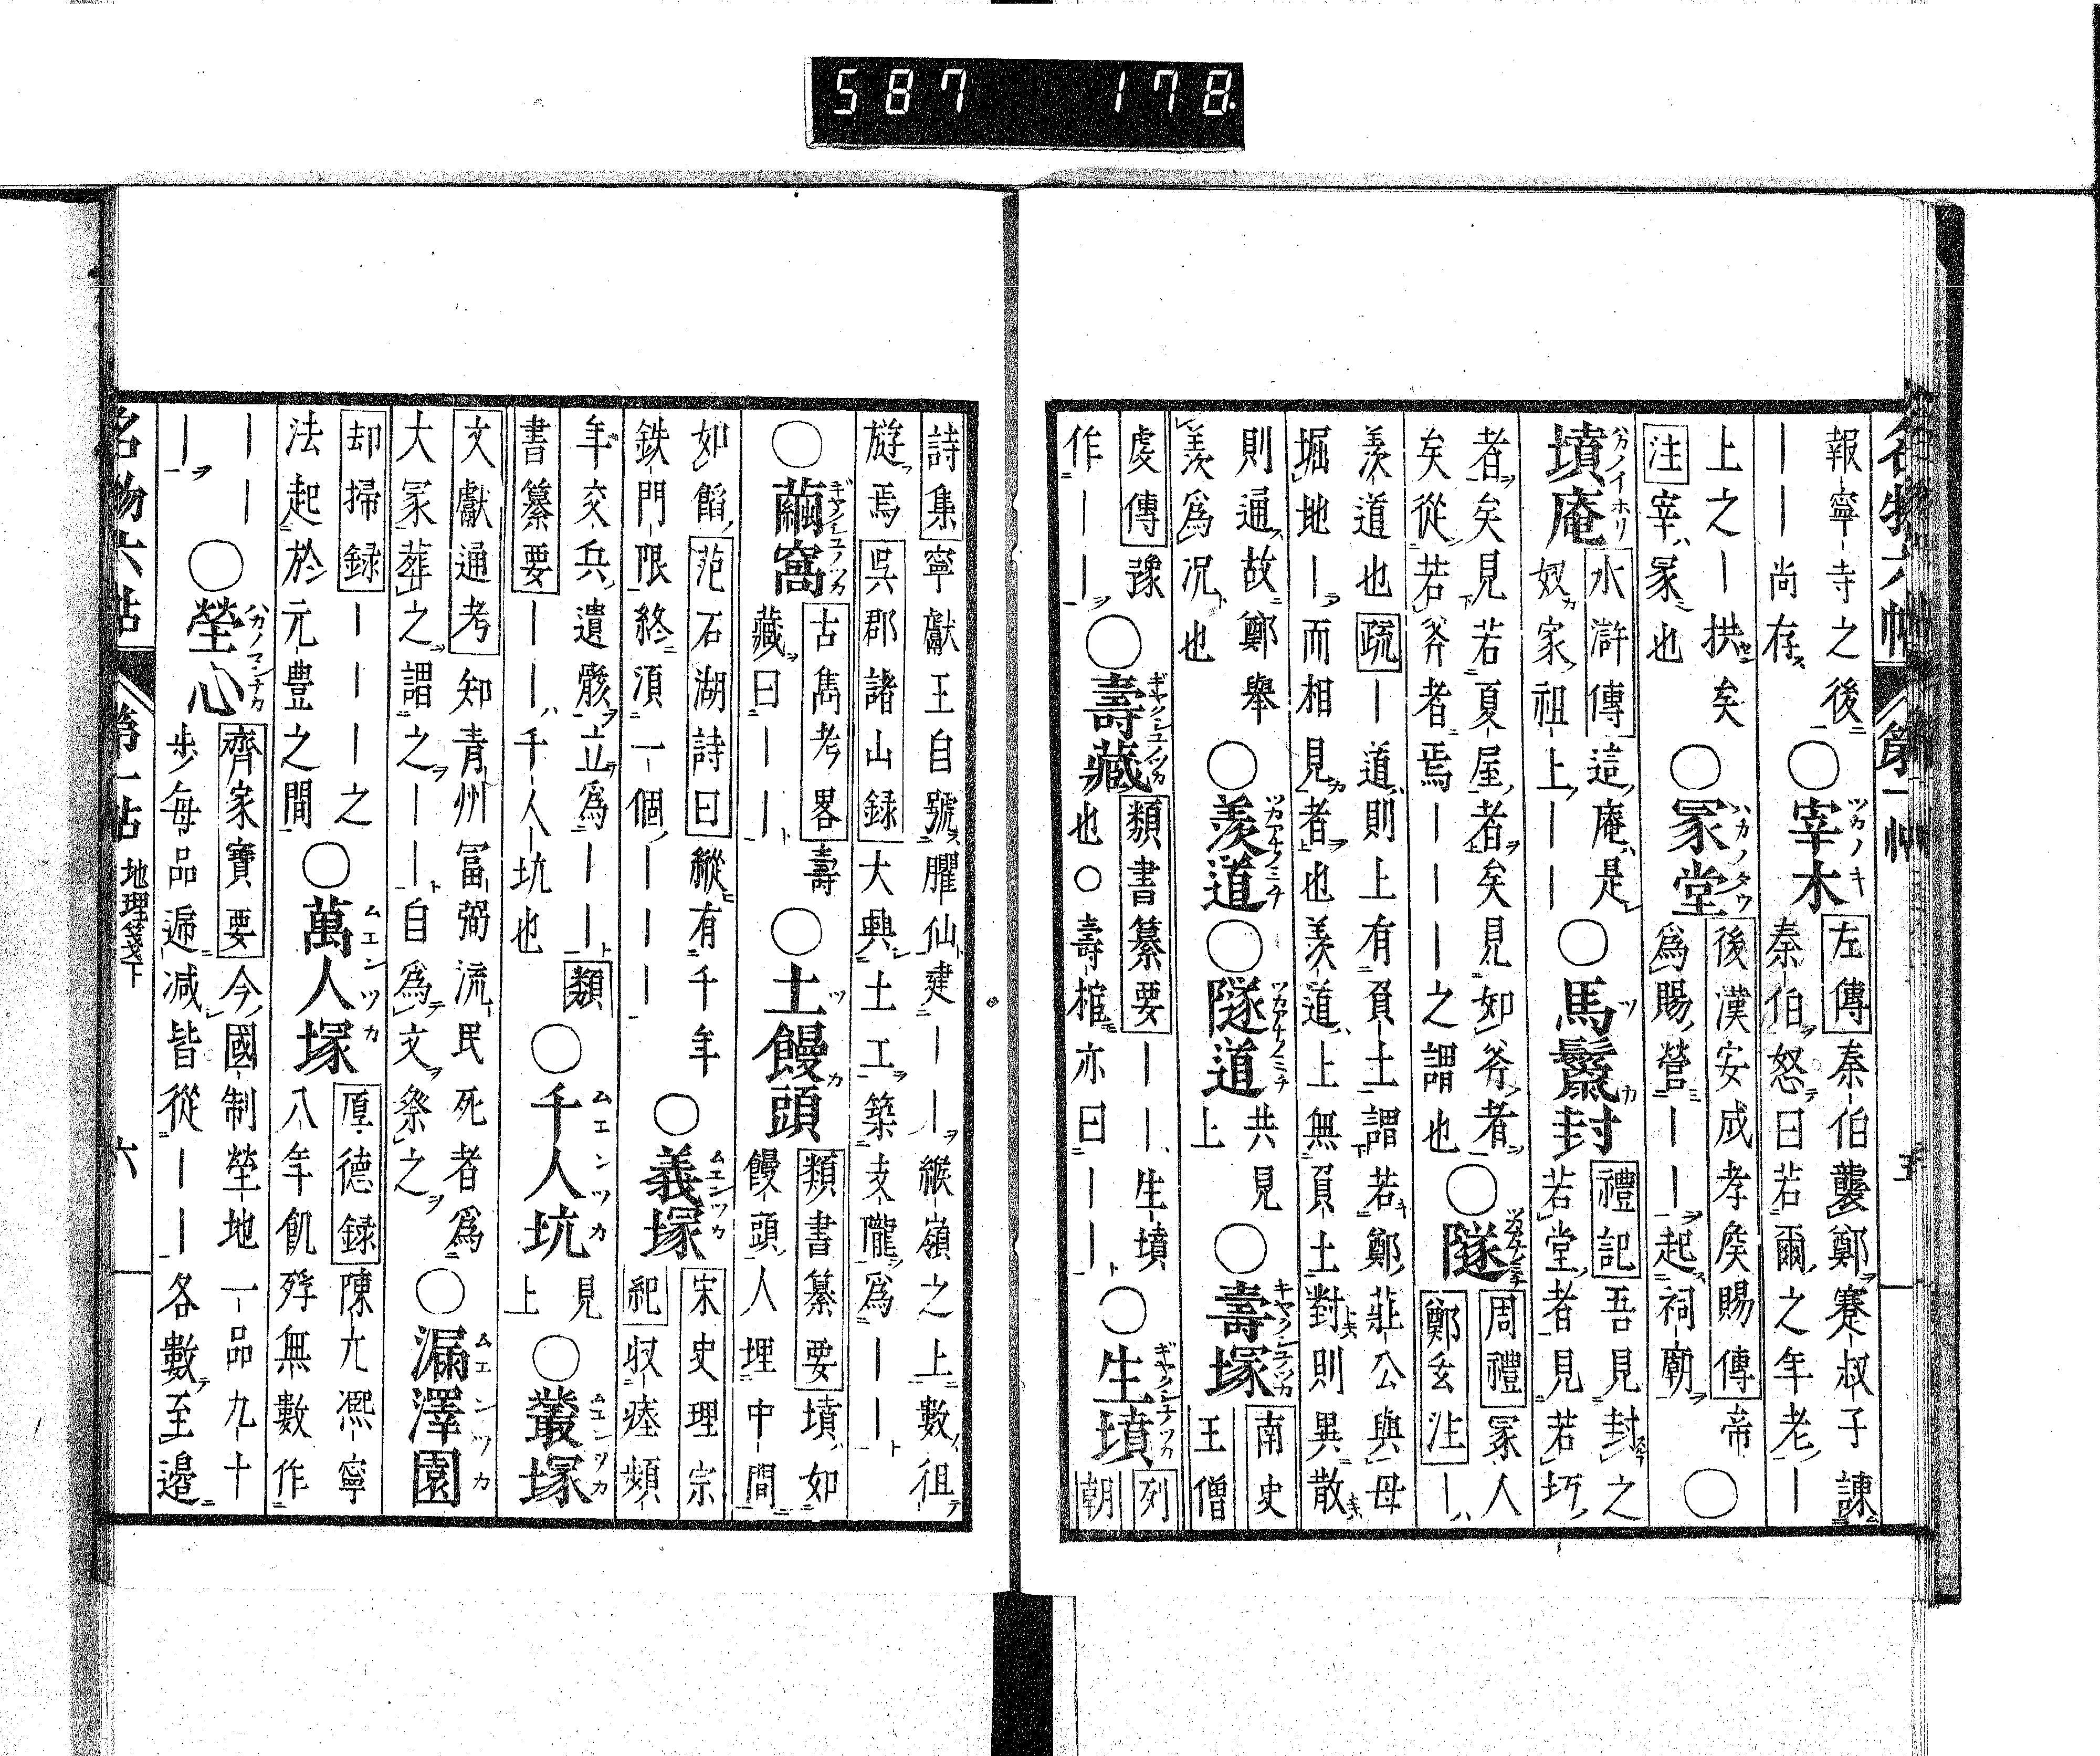 587 178
名物六帖 第一帖 五
報寧寺之後
――尚存
〇宰木
左傳秦伯襲鄭蹇叔子諌
秦伯怒曰若爾之年老―
上之―拱矣
注宰冢也
〇冢堂
後漢安成孝侯賜傳帝
為賜營――起祠廟
〇墳庵
水滸傳這庵是
奴家祖上――
〇馬鬣封
禮記吾見封之
若堂者見若坊
者矣見若夏屋者矣見如斧者
矣從若斧者焉―――之謂也
〇隧
周禮冢人
鄭玄注―
羨道也疏―道則上有負土謂若鄭莊公與母
堀地―而相見者也羨道上無負土對則異散
則通故鄭舉
羨為况也
〇羨道〇隧道
共見
上
〇壽塚
南史
王僧
虔傳豫
作――
〇壽藏
類書纂要――生墳
也○壽棺亦曰――
〇生墳
列
朝
詩集寧獻王自號臞仙建――緱嶺之上數徃
遊焉呉郡諸山録大興土工築支隴為――
〇繭窩
古雋考畧壽
藏曰――
〇土饅頭
類書纂要墳如
饅頭人埋中間
如餡范石湖詩曰縱有千年
鉄門限終須一個―――
〇義塚
宋史理宗
紀収瘞頬
年交兵遺骸立為――類
書纂要―――千人坑也
〇千人坑
見
上
〇叢塚
文獻通考知青州冨弼流民死者為
大冢葬之謂之――自為文祭之
〇漏澤園
却掃録―――之
法起於元豊之間
〇萬人塚
厚德録陳尢凞寧
八年飢殍無數作
――
―
〇塋心
齊家寶要今國制塋地一品九十
步每品遞减皆從――各數至邊
名物六帖 第一帖 地理箋下 六